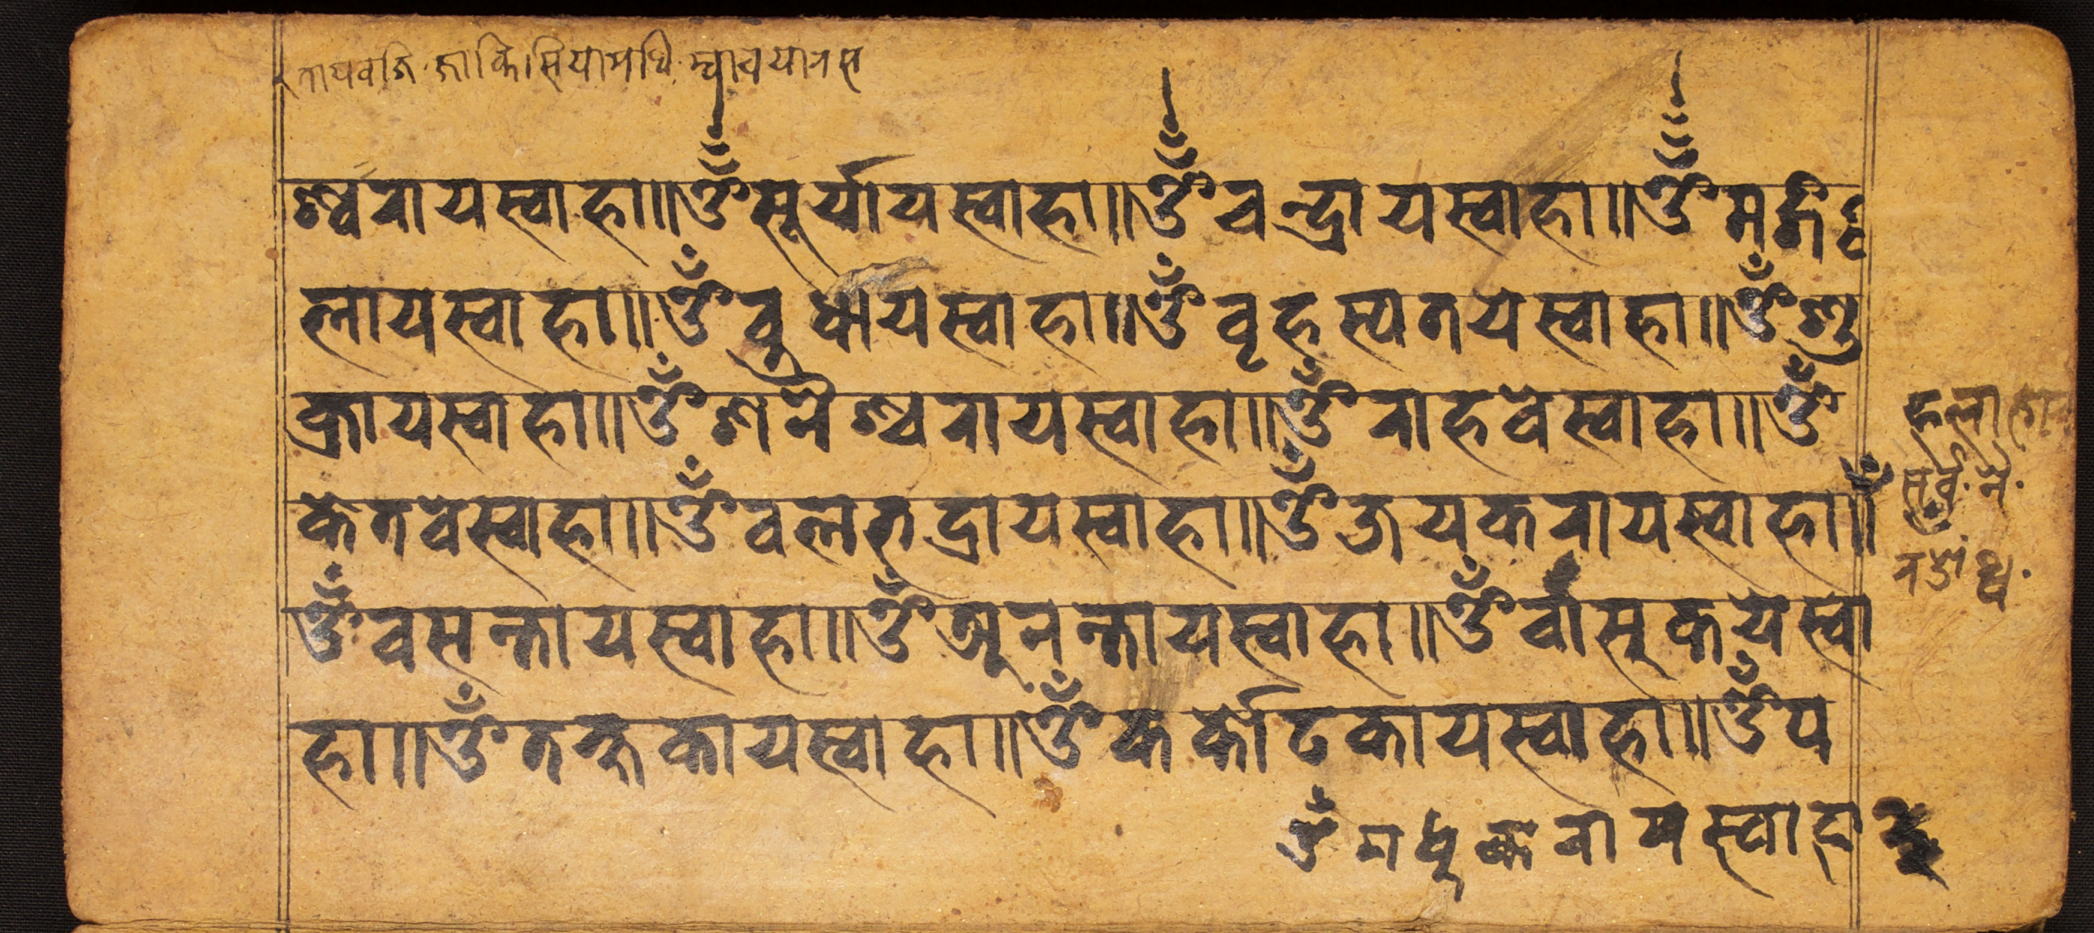 श्वरायस्वाहा॥ॐसूर्यायस्वाहा॥ॐचन्द्रायस्वाहा॥ॐमङ्ग
लायस्वाहा॥ॐवुधायस्वाहा॥ॐवृहस्पतयेस्वाहा॥ॐशु
क्रायस्वाहा॥ॐशनैश्चरायस्वाहा॥ॐराहवेस्वाहा॥ॐ
केतवेस्वाहा॥ॐवलभद्रायस्वाहा॥ॐजयकरायस्वाहा॥
ॐवसन्तायस्वाहा॥ॐअनन्तायस्वाहा॥ॐवासुकयेस्वा
हा॥ॐतक्षकायस्वाहा॥ॐकर्कोटकायस्वाहा॥ॐप
ॐमधुकरायस्वाहा